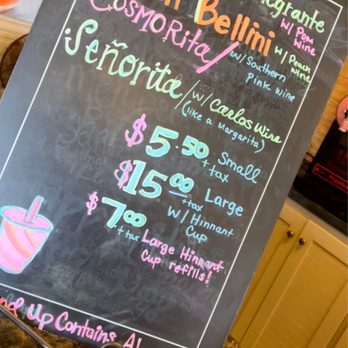 w/ Pom
wine
Bellini
w/ Peach
wine
Cosmorita/
w/ Southern
Pink Wine
Señorita/
w/ Carlos Wine
(like a Margarita)
$5.50 Small
+tax
$15.00 Large
+tax w/ Hinnant
Cup
$7.00
+tax Large Hinnant
Cup refills!
Up Contains